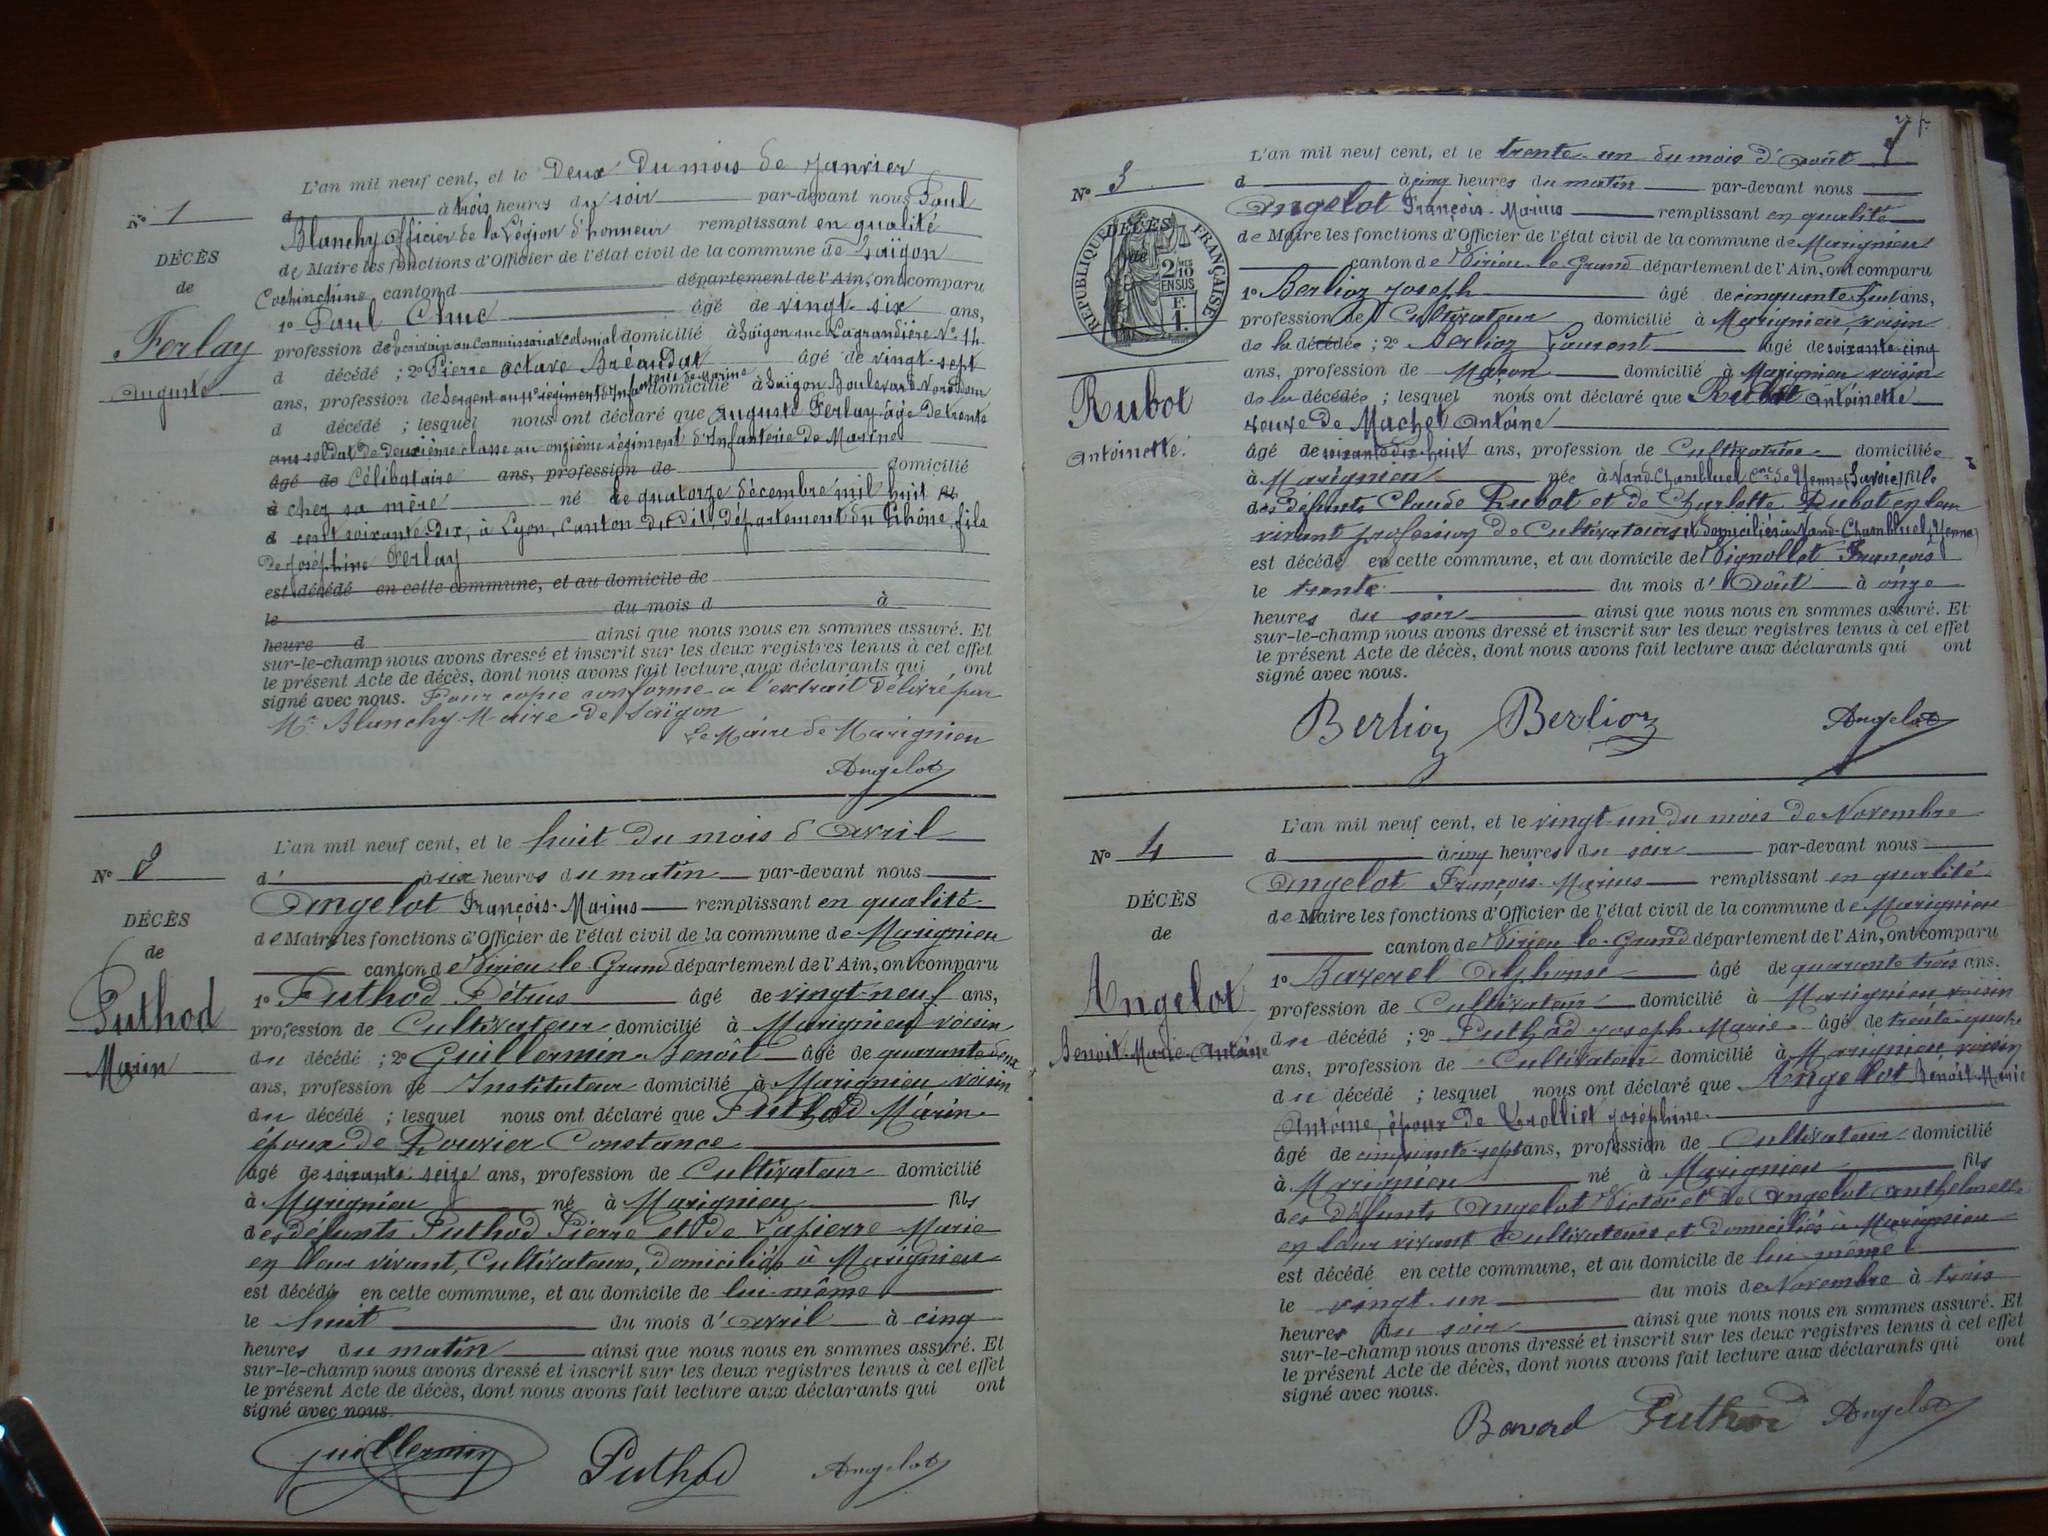 N° 1
DÉCÈS
de
Ferlay
Auguste
L'an mil neuf cent, et le Deux Du mois de Janvier
d à trois heures du soir par-devant nous Paul
Blanchy officier de la Légion d'honneur remplissant en qualité
de Maire les fonctions d'Officier de l'état civil de la commune de Saïgon
Cochinchine canton d département de l'Ain, ont comparu
1° Paul Chuc âgé de vingt-six ans,
profession de Ecrivain au Commissariat colonial domicilié à Saïgon rue Lagrandière N° 14
d décédé ; 2° Pierre octave Bréaudat âgé de vingt-sept
ans, profession de Sergent au 11e régiment d'Infanterie de Marine domicilié à Saïgon Boulevard Norodom
d décédé ; lesquel nous ont déclaré que Auguste Ferlay âgé de trente
ans soldat de deuxième classe au onzième régiment d'Infanterie de Marine
âgé de Célibataire ans, profession de domicilié
à chez sa mère né le quatorze décembre mil huit
cent soixante dix, à Lyon, Canton du dit Département du Rhône, fils
de Joséphine Ferlay
est décédé en cette commune, et au domicile de
le du mois d à
heure d ainsi que nous nous en sommes assuré. Et
sur-le-champ nous avons dressé et inscrit sur les deux registres tenus à cet effet
le présent Acte de décès, dont nous avons fait lecture aux déclarants qui ont
signé avec nous. Pour copie conforme a l'extrait délivré par
Mr Blanchy Maire de Saïgon
Le Maire de Marignieu
Angelot
N° 2
DÉCÈS
de
Puthod
Marin
L'an mil neuf cent, et le huit du mois d'Avril
d' à six heures du matin par-devant nous
Angelot François-Marius remplissant en qualité
de Maire les fonctions d'Officier de l'état civil de la commune de Marignieu
canton de Virieu-le-Grand département de l'Ain, ont comparu
1° Puthod Pétrus âgé de vingt-neuf ans,
profession de Cultivateur domicilié à Marignieu voisin
du décédé ; 2° Guillermin Benoît âgé de quarante deux
ans, profession de Instituteur domicilié à Marignieu voisin
du décédé ; lesquel nous ont déclaré que Puthod Marin
époux de Rouvier Constance
âgé de soixante-seize ans, profession de Cultivateur domicilié
à Marignieu né à Marignieu fils
des défunts Puthod Pierre et de Lapierre Marie
en leur vivant, Cultivateurs, domiciliés à Marignieu
est décédé en cette commune, et au domicile de lui-même
le huit du mois d'avril à cinq
heures du matin ainsi que nous nous en sommes assuré. Et
sur-le-champ nous avons dressé et inscrit sur les deux registres tenus à cet effet
le présent Acte de décès, dont nous avons fait lecture aux déclarants qui ont
signé avec nous.
Guillermin Puthod Angelot
N° 3
DÉCÈS
de
RÉPUBLIQUE FRANÇAISE
2/10 MES
EN SUS
1 F.
Rubot
Antoinette.
L'an mil neuf cent, et le trente-un du mois d'Août
d à cinq heures du matin par-devant nous
Angelot François-Marius remplissant en qualité
de Maire les fonctions d'Officier de l'état civil de la commune de Marignieu
canton de Virieu-le-Grand département de l'Ain, ont comparu
1° Berlioz Joseph âgé de cinquante-huit ans,
profession de Cultivateur domicilié à Marignieu, voisin
de la décédée ; 2° Berlioz Laurent âgé de soixante-cinq
ans, profession de Maçon domicilié à Marignieu voisin
de la décédée ; lesquel nous ont déclaré que Rubot Antoinette
veuve de Machet Antoine
âgé de soixante dix-huit ans, profession de Cultivatrice domiciliée
à Marignieu née à Nand Chambuel Cne de Yenne (Savoie) fille
des défunts Claude Rubot et de Charlotte Rubot en leur
vivant profession de Cultivateurs et domiciliés à Nand-Chambuel (Yenne)
est décédé en cette commune, et au domicile de Vignollet François
le trente du mois d'Août à onze
heures du soir ainsi que nous nous en sommes assuré. Et
sur-le-champ nous avons dressé et inscrit sur les deux registres tenus à cet effet
le présent Acte de décès, dont nous avons fait lecture aux déclarants qui ont
signé avec nous.
Berlioz Berlioz Angelot
N° 4
DÉCÈS
de
Angelot
Benoit-Marie-Antoine
L'an mil neuf cent, et le vingt-un du mois de Novembre
d à cinq heures du soir par-devant nous
Angelot François-Marius remplissant en qualité
de Maire les fonctions d'Officier de l'état civil de la commune de Marignieu
canton de Virieu-le-Grand département de l'Ain, ont comparu
1° Baverel Alphonse âgé de quarante trois ans.
profession de Cultivateur domicilié à Marignieu voisin
du décédé ; 2° Puthod Joseph-Marie âgé de trente-quatre
ans, profession de Cultivateur domicilié à Marignieu, voisin
du décédé ; lesquel nous ont déclaré que Angelot Benoît-Marie
Antoine, époux de Trolliet Joséphine
âgé de cinquante-sept ans, profession de Cultivateur domicilié
à Marignieu né à Marignieu fils
des défunts Angelot Victor et de Angelot Anthelmette
en leur vivant Cultivateurs et domiciliés à Marignieu
est décédé en cette commune, et au domicile de lui-même
le vingt-un du mois de Novembre à trois
heures du soir ainsi que nous nous en sommes assuré. Et
sur-le-champ nous avons dressé et inscrit sur les deux registres tenus à cet effet
le présent Acte de décès, dont nous avons fait lecture aux déclarants qui ont
signé avec nous.
Puthod Angelot